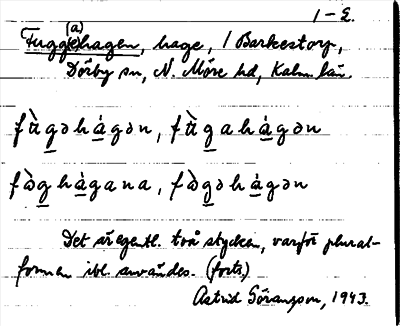 1-2.
(a)
Fugg(e)hagen, hage, 1 Barkestorp,
Dörby sn, N. Möre hd, Kalm. län.
fùgǝhágǝn, fùgahágǝn
fòghágana, fògǝhágǝn
Det är egentl. två stycken, varför plural-
formen ibl. användes. (forts)
Astrid Göransson, 1943.